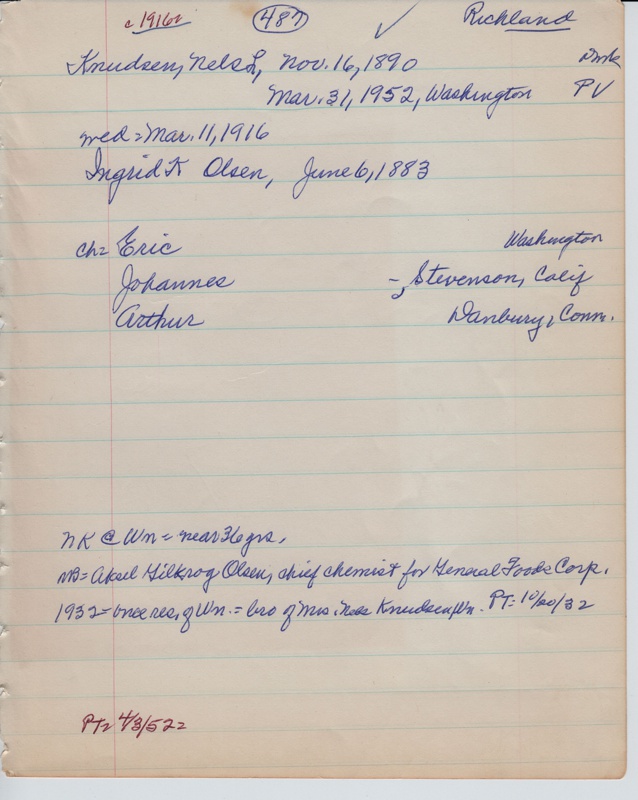 c1916= 487 ✓ Richland
Knudsen, Nels L, Nov. 16, 1890 Dmk
Mar. 31, 1952, Washington PV
wed = Mar. 11, 1916
Ingrid K Olsen, June 6, 1883
ch= Eric Washington
Johannes -, Stevenson, Calif
Arthur Danbury, Conn.
NK @ Wn = near 36 yrs.
NB= Aksel Gilkrog Olsen, chief chemist for General Foods Corp.
1932 = once res. of Wn. = bro of Mrs. Nels Knudsen, Wn. PT= 10/20/32
PT= 4/3/52=